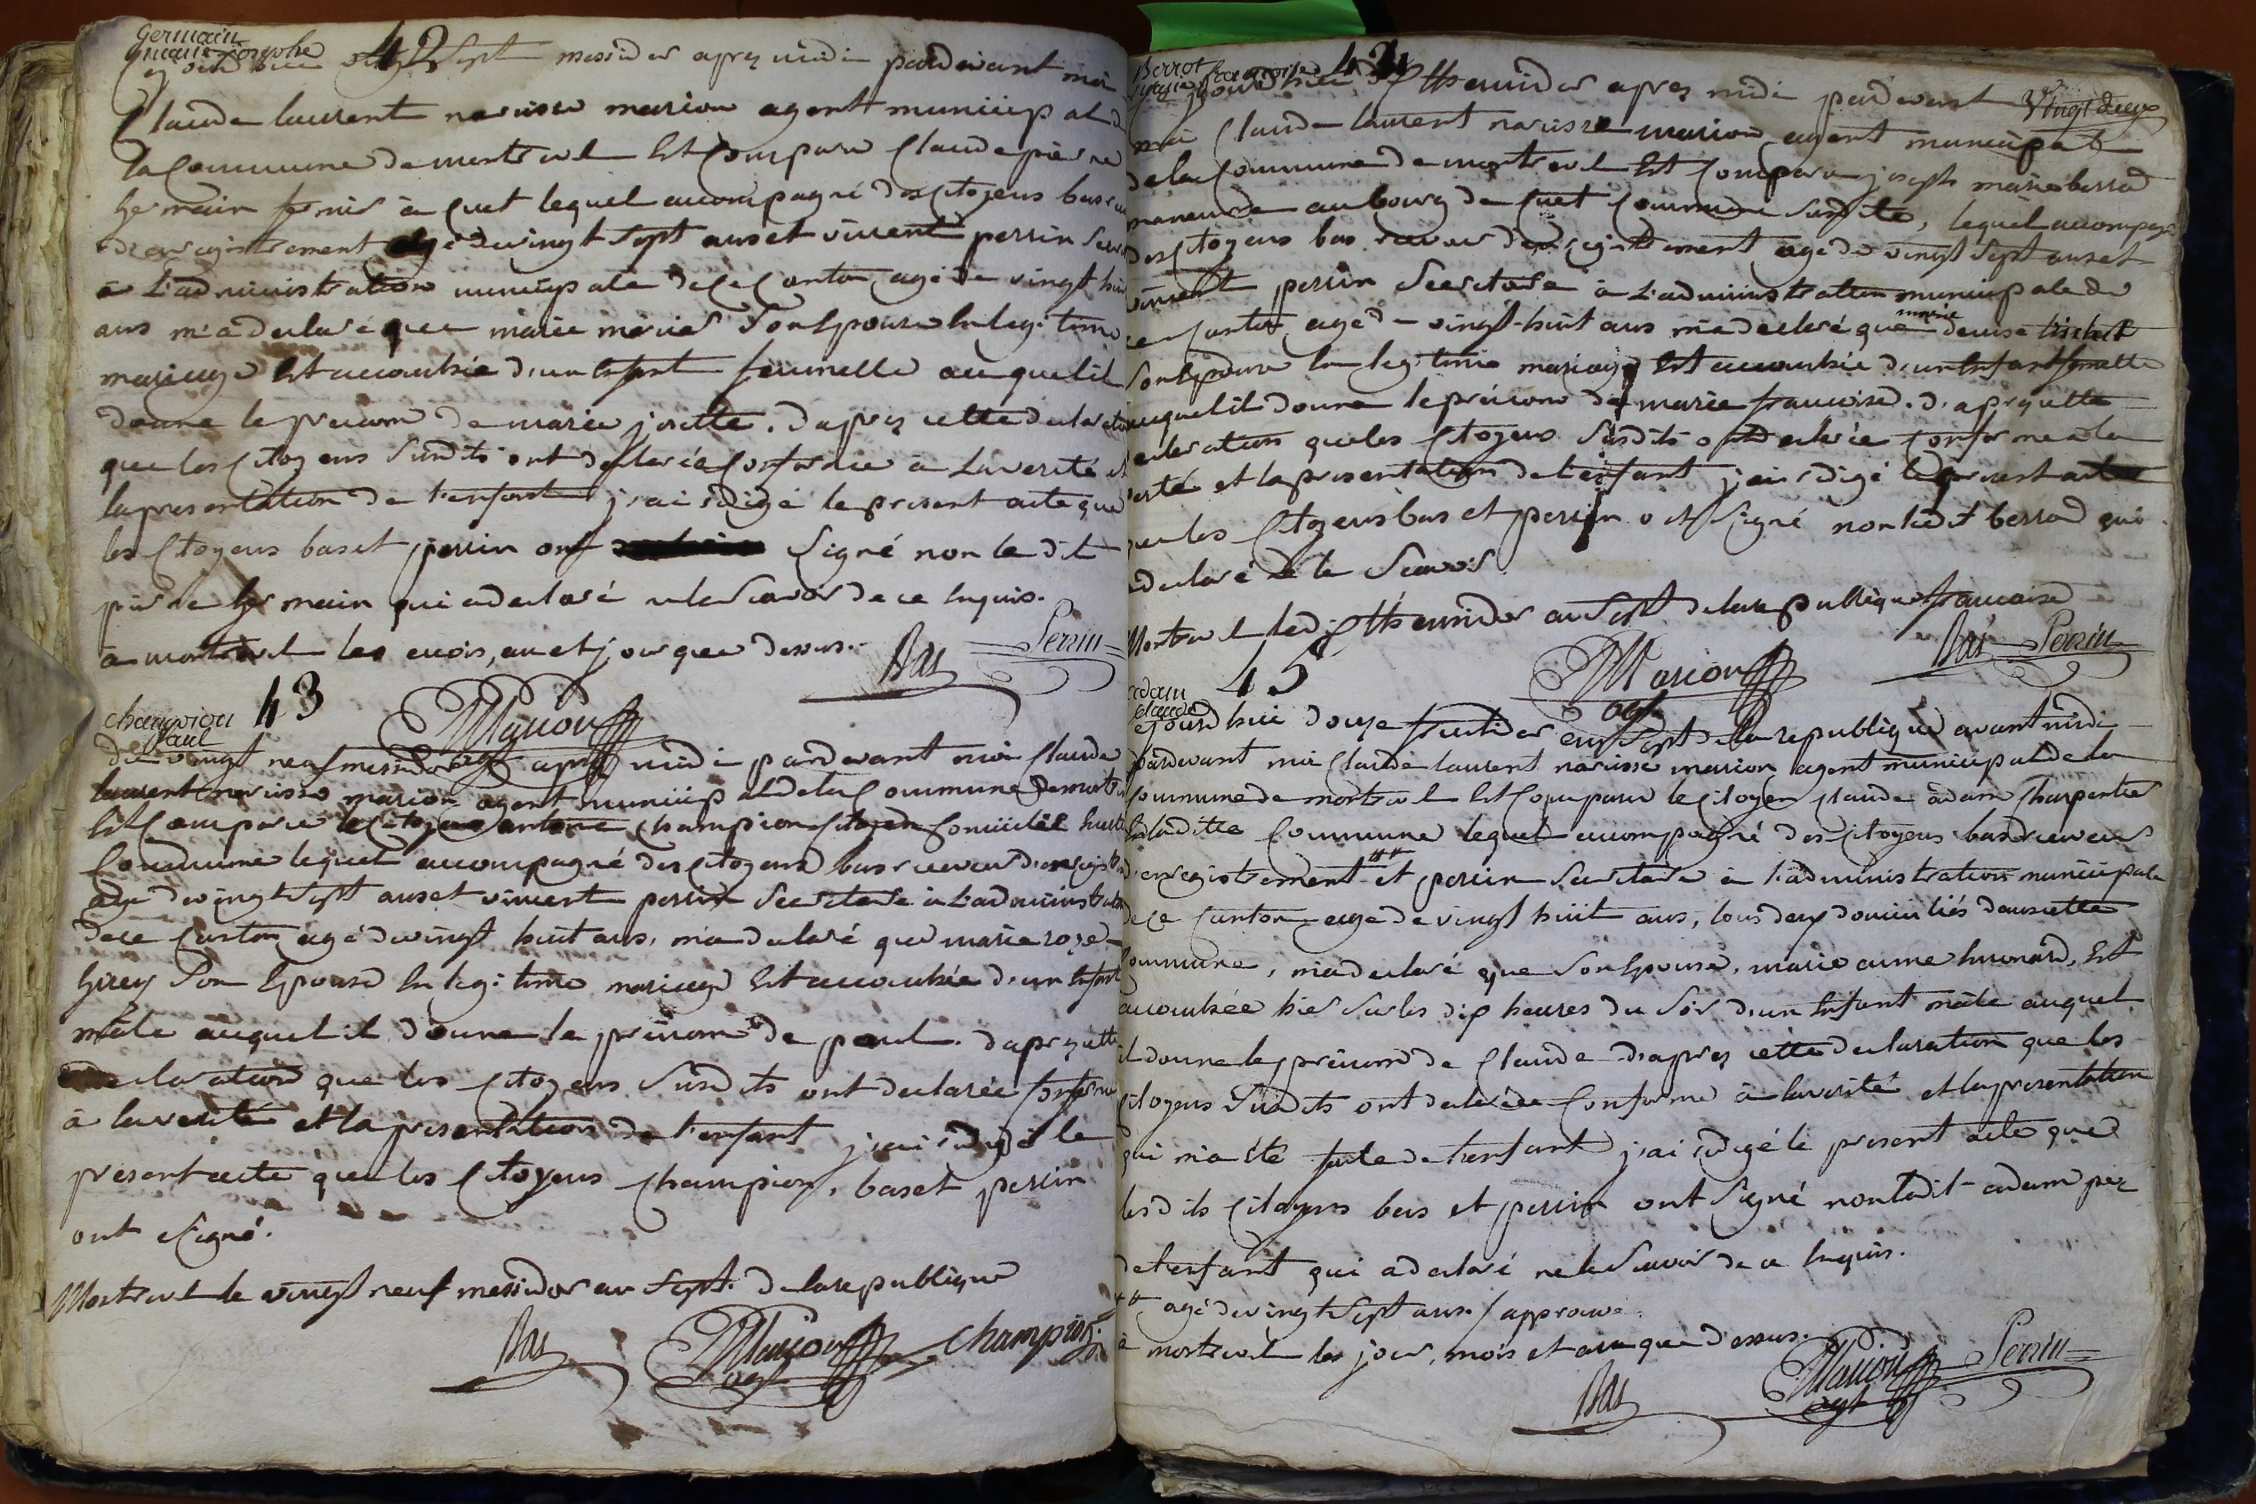 Germain
marie josephe
42
sept messidor apres midi pardevant moi
Claude laurent narcisse marion agent municipal de
la Commune de montrevel Est Comparu Claude pierre
Germain fermier à Cuet lequel accompagné des Citoyens bas
d'enregistrement agé de vingt sept ans et vincent perrin
à L'administration municipale de ce Canton agé de vingt huit
ans m'a declaré que marie mercier Son Epouse En legitime
mariage Est accouchée d'un Enfant femmelle auquel il
donne le prenom de marie josette. d'apres cette declaration
que les Citoyens Susdits ont declarée Conforme à La verité et
la presentation de l'enfant j'ai rédigé le present acte que
les Citoyens bas et perrin ont signé non le dit
pierre germain qui a declaré ne le Scavoir de ce Enquis.
à montrevel les mois, an et jour que dessus.
Bas Perrin
Marion
agt
champion
Paul
43
Du vingt neuf messidor apres midi pardevant moi Claude
laurent narcisse marion agent municipal de la Commune de
Est Comparu le Citoyen antoine Champion Citoyen Domicilié
Commune lequel accompagné des Citoyens bas receveur
agé de vingt sept ans et vincent perrin Secretaire à L'administration
de ce Canton agé de vingt huit ans, m'a declaré que marie roze
girey Son Epouse En legitime mariage Est accouchée d'un Enfant
mâle auquel il donne le prénom de paul. d'apres cette
declaration que les Citoyens Susdits ont declarée Conforme
à la verité et la presentation de l'enfant j'ai rédigé le
present acte que les Citoyens Champion, bas et perrin
ont signé.
Montrevel le vingt neuf messidor an Sept. de la republique
Bas Marion champion
agt
Berrot
marie francoise
44
Vingt deux
thermidor apres midi pardevant
moi Claude laurent narcisse marion agent municipal
de la Commune de montrevel Est Comparu joseph marie berrod
maneuvre au bourg de Cuet Commune Susdite, lequel accompagné
des Citoyens bas receveur d'enregistrement agé de vingt Sept ans et
vincent perrin Secretaire à L'administration municipale de
ce Canton agé de vingt-huit ans m'a declaré que marie denise
Son Epouse En legitime mariage Est accouchée d'un Enfant femelle
auquel il donne le prénom de marie francoise. d'apres cette
declaration que les Citoyens Susdits ont declarée Conforme à la
verité et la presentation de l'enfant j'ai rédigé le present acte
que les Citoyens bas et perrin ont Signé non ledit berrod qui
a declaré ne le Scavoir
Montrevel le dix thermidor an Sept de la republique francaise
Bas Perrin
Marion
agt
adam
Claude
45
ejourd'hui douze fructidor an Sept de la republique avant midi
pardevant moi Claude laurent narcisse marion agent municipal de la
Commune de montrevel Est Comparu le Citoyen Claude adam Charpentier
En la ditte Commune lequel accompagné des Citoyens bas receveur
d'enregistrement ++ et perrin Secretaire à l'administration municipale
de ce Canton agé de vingt huit ans, tous deux domiciliés dans cette
Commune, m'a declaré que Son Epouse, marie anne, Est
accouchée hier Sur les dix heures du Soir d'un Enfant mâle auquel
il donne le prénom de Claude d'apres cette declaration que les
Citoyens Susdits ont declarée Conforme à la verité et la presentation
qui m'a été faite de l'enfant j'ai rédigé le present acte que
lesdits Citoyens bas et perrin ont Signé non ledit adam pere
de l'enfant qui a declaré ne le Scavoir de ce Enquis.
++ agé de vingt Sept ans / approuvé.
à montrevel les jour, mois et an que dessus.
Bas Marion Perrin
agt